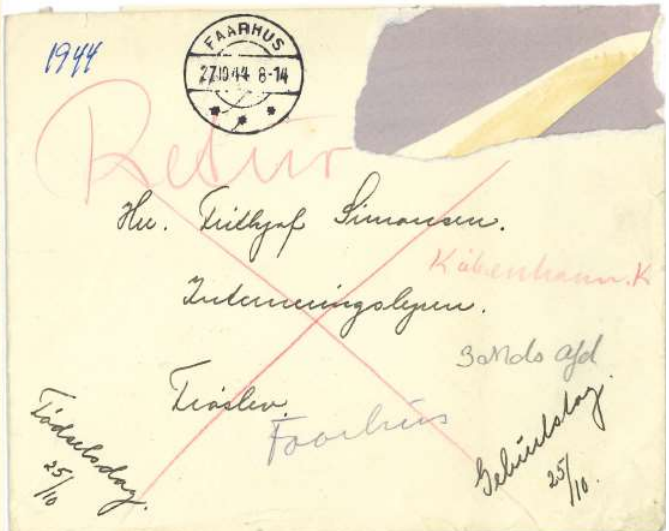 1944
FAARHUS
27.10.44 8-14
Retur
Hr. Frithjof Simonsen.
København. K
Interneringslejren.
Frøslev.
Faarhus
Fødselsdag.
25/10
Geburtstag.
25/10.